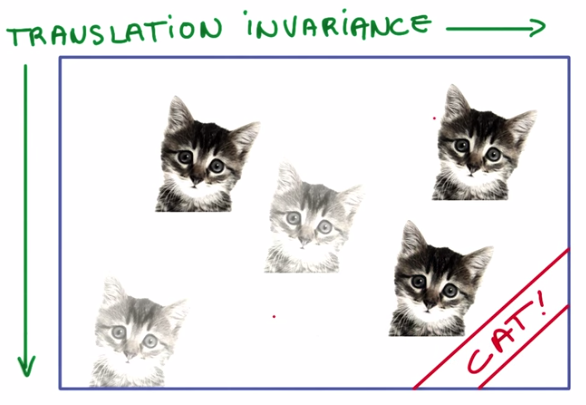 TRANSLATION INVARIANCE
CAT!